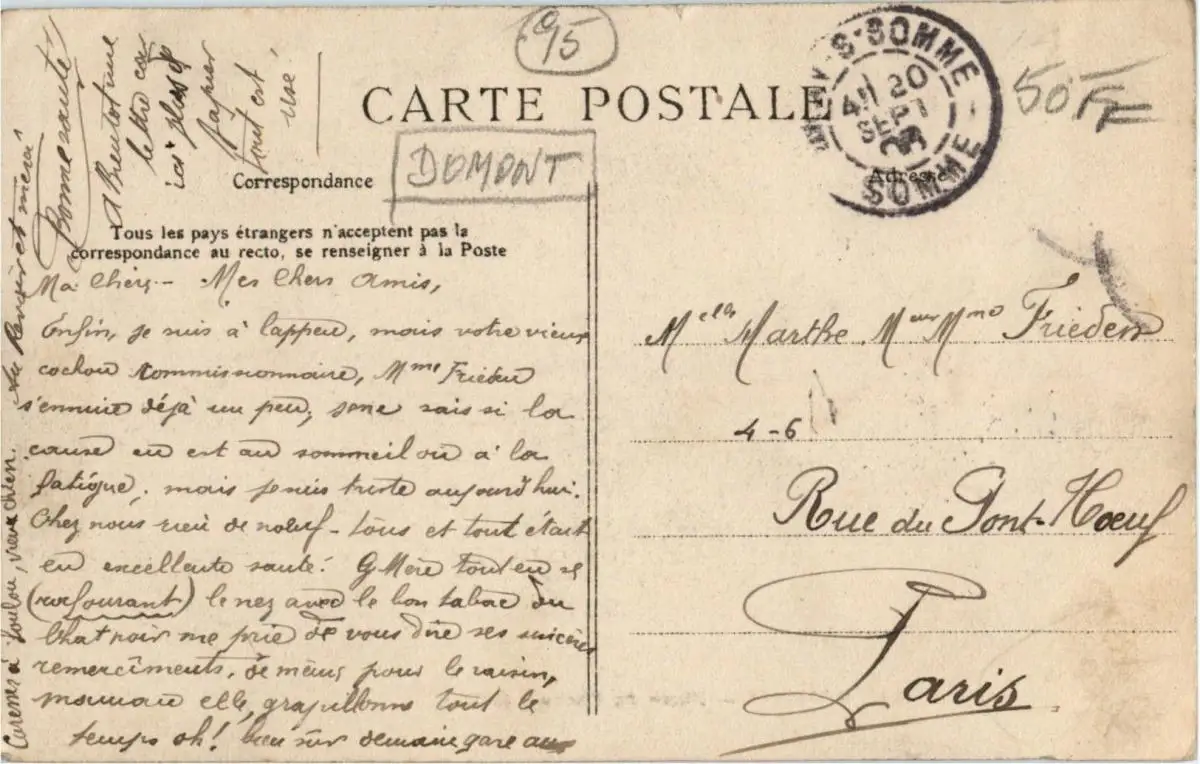 95
CARTE POSTALE
50 FF
DOMONT
S-SOMME
20
SEPT
SOMME
Correspondance
Adresse
Tous les pays étrangers n'acceptent pas la
correspondance au recto, se renseigner à la Poste
Ma Chère - Mes Chers Amis,
Enfin, je suis à l'appeu, mais votre vieux
cochon commissionnaire, Mme Frieden
s'ennuie déjà un peu, je ne sais si la
cause en est au sommeil ou à la
fatigue, mais je suis triste aujourd'hui.
Chez nous rien de nœuf - tous et tout était
en excellente santé. G Mère tout en se
(rocfourant) le nez avec le bon tabac du
Chat noir me prie de vous dire ses sincères
remerciments, de même pour le raisin,
maman elle, grapillonne tout le
temps oh! bien sûr demain gare aux
Caresses à Loulou, vieux chien. Au Revoir et merci
Bonne santé
A Bientôt une
lettre car
ici plus de
papier
tout est
usé.
Melle Marthe Meur Mme Frieden
4-6
Rue du Pont-Nœuf
Paris